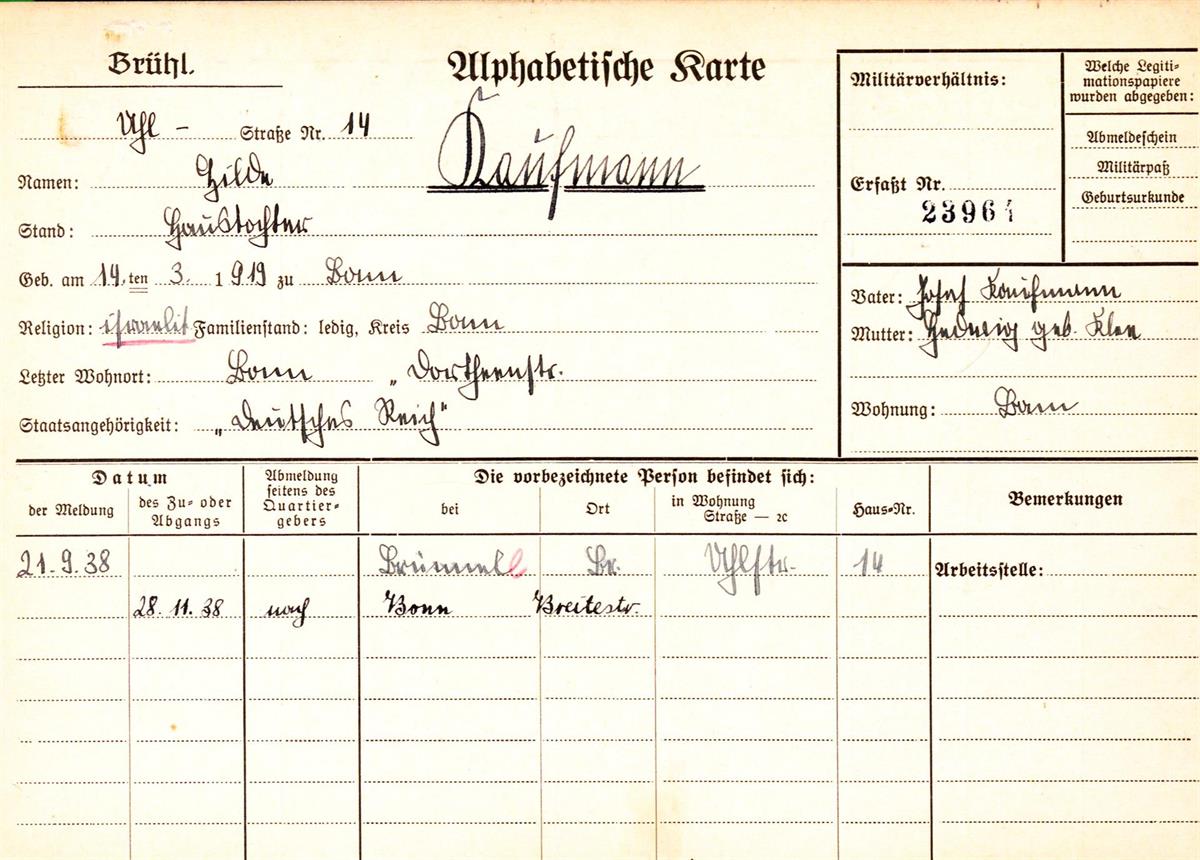 Brühl.
Alphabetische Karte
Uhl- Straße Nr. 14
Namen: Hilde Kaufmann
Stand: Haustochter
Geb. am 14.ten 3. 1919 zu Bonn
Religion: israelit Familienstand: ledig, Kreis Bonn
Letzter Wohnort: Bonn „Dortheenstr.
Staatsangehörigkeit: „Deutsches Reich"
Militärverhältnis:
Erfaßt Nr.
23961
Welche Legiti-
mationspapiere
wurden abgegeben:
Abmeldeschein
Militärpaß
Geburtsurkunde
Vater: Josef Kaufmann
Mutter: Hedwig geb. Klee
Wohnung: Bonn
Datum
der Meldung
des Zu- oder
Abgangs
Abmeldung
seitens des
Quartier-
gebers
Die vorbezeichnete Person befindet sich:
bei
Ort
in Wohnung
Straße — ꝛc
Haus-Nr.
Bemerkungen
21.9.38 Brümmell Br. Uhlstr. 14
Arbeitsstelle:
28.11.38 nach Bonn Breitestr.